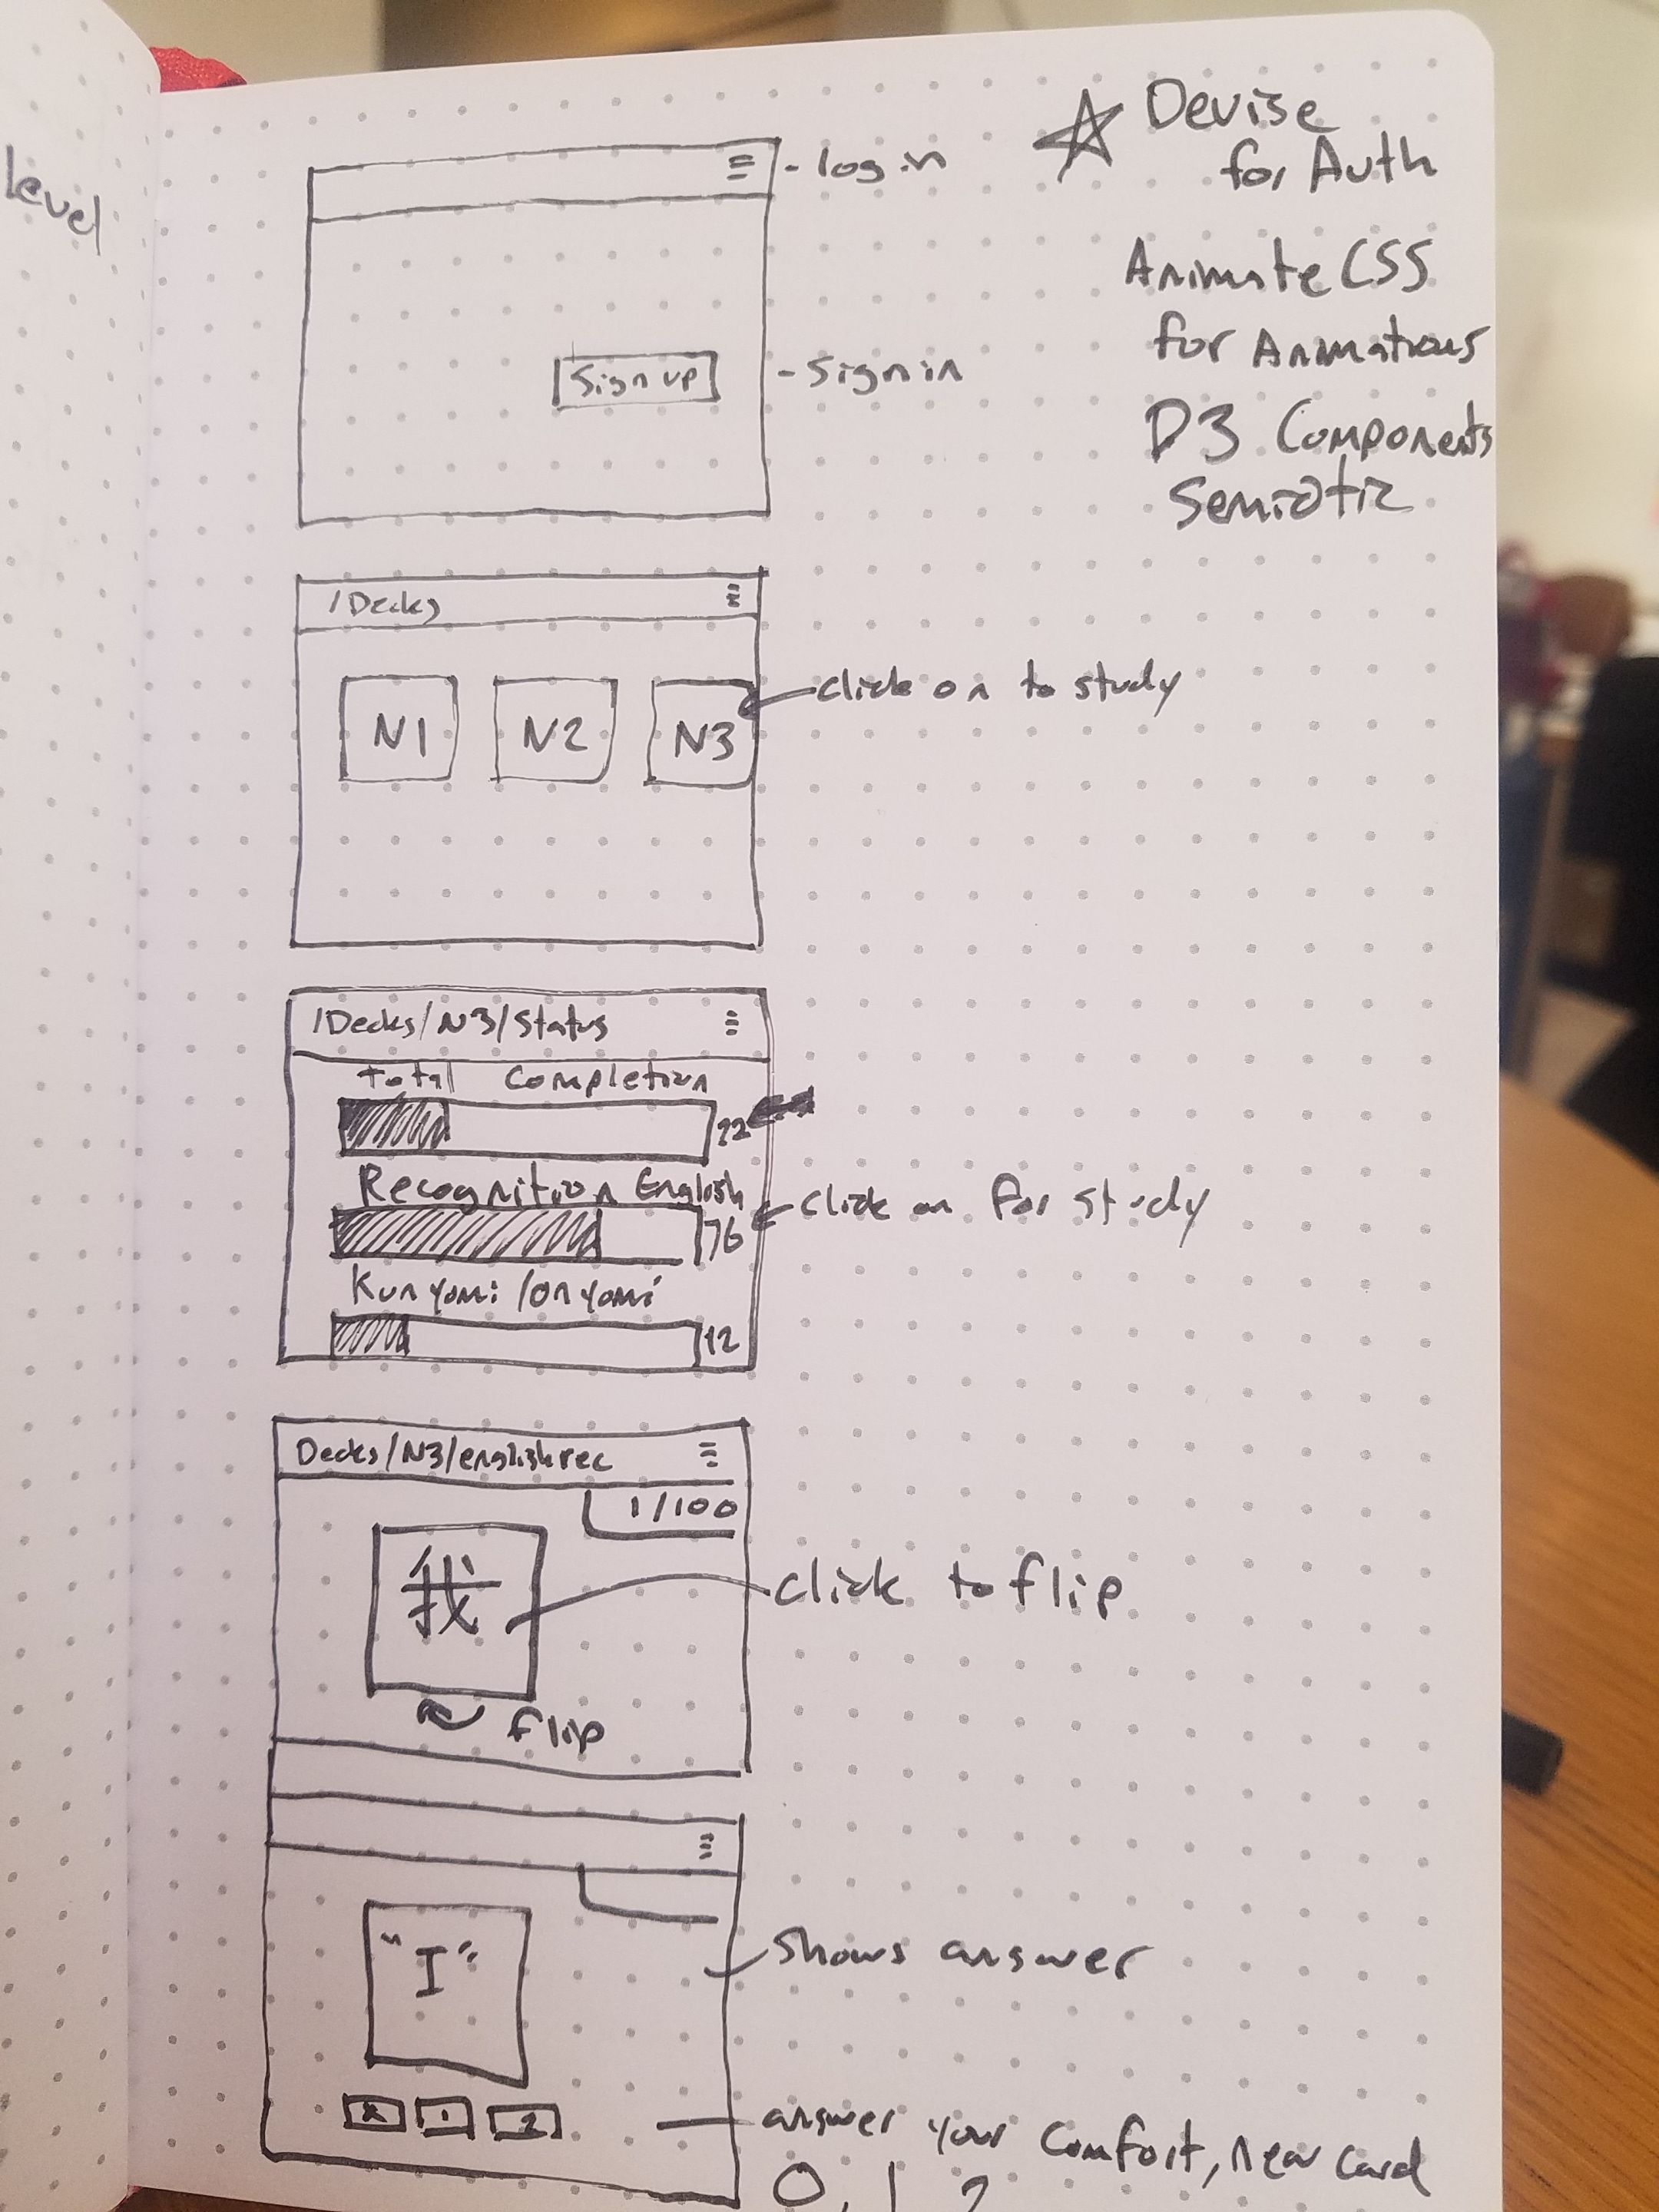 level
☆ Devise
for Auth
Animate CSS
for Animations
D3 Components
Semiotic
- log in
Sign up
- Sign in
/Decks
N1 N2 N3
click on to study
/Decks/N3/Status
Total Completion
22
Recognition English
76
click on for study
Kunyomi /onyomi
12
Decks/N3/englishrec
1/100
我
click to flip
flip
"I"
shows answer
1 2
answer your comfort, new card
0, 1, 2